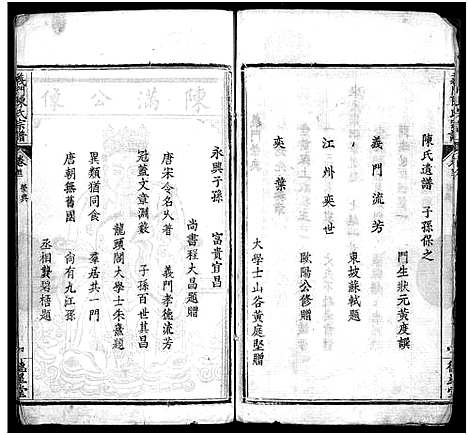 陳氏遺譜 子孫保之
門生狀元黃度譔
義門流芳
東坡蘇軾題
江州奕世
歐陽公修贈
奕葉
大學士山谷黃庭堅贈
永興子孫 富貴宜昌
尚書程大昌題贈
唐宋令名久著 義門孝德流芳
冠蓋文章灝瀫 子孫百世其昌
龍頭閣大學士朱熹題
異類猶同食 羣居共一門
唐朝無舊國 尚有九江孫
丞相龔碧梧題
義門陳氏宗譜
陳滿公像